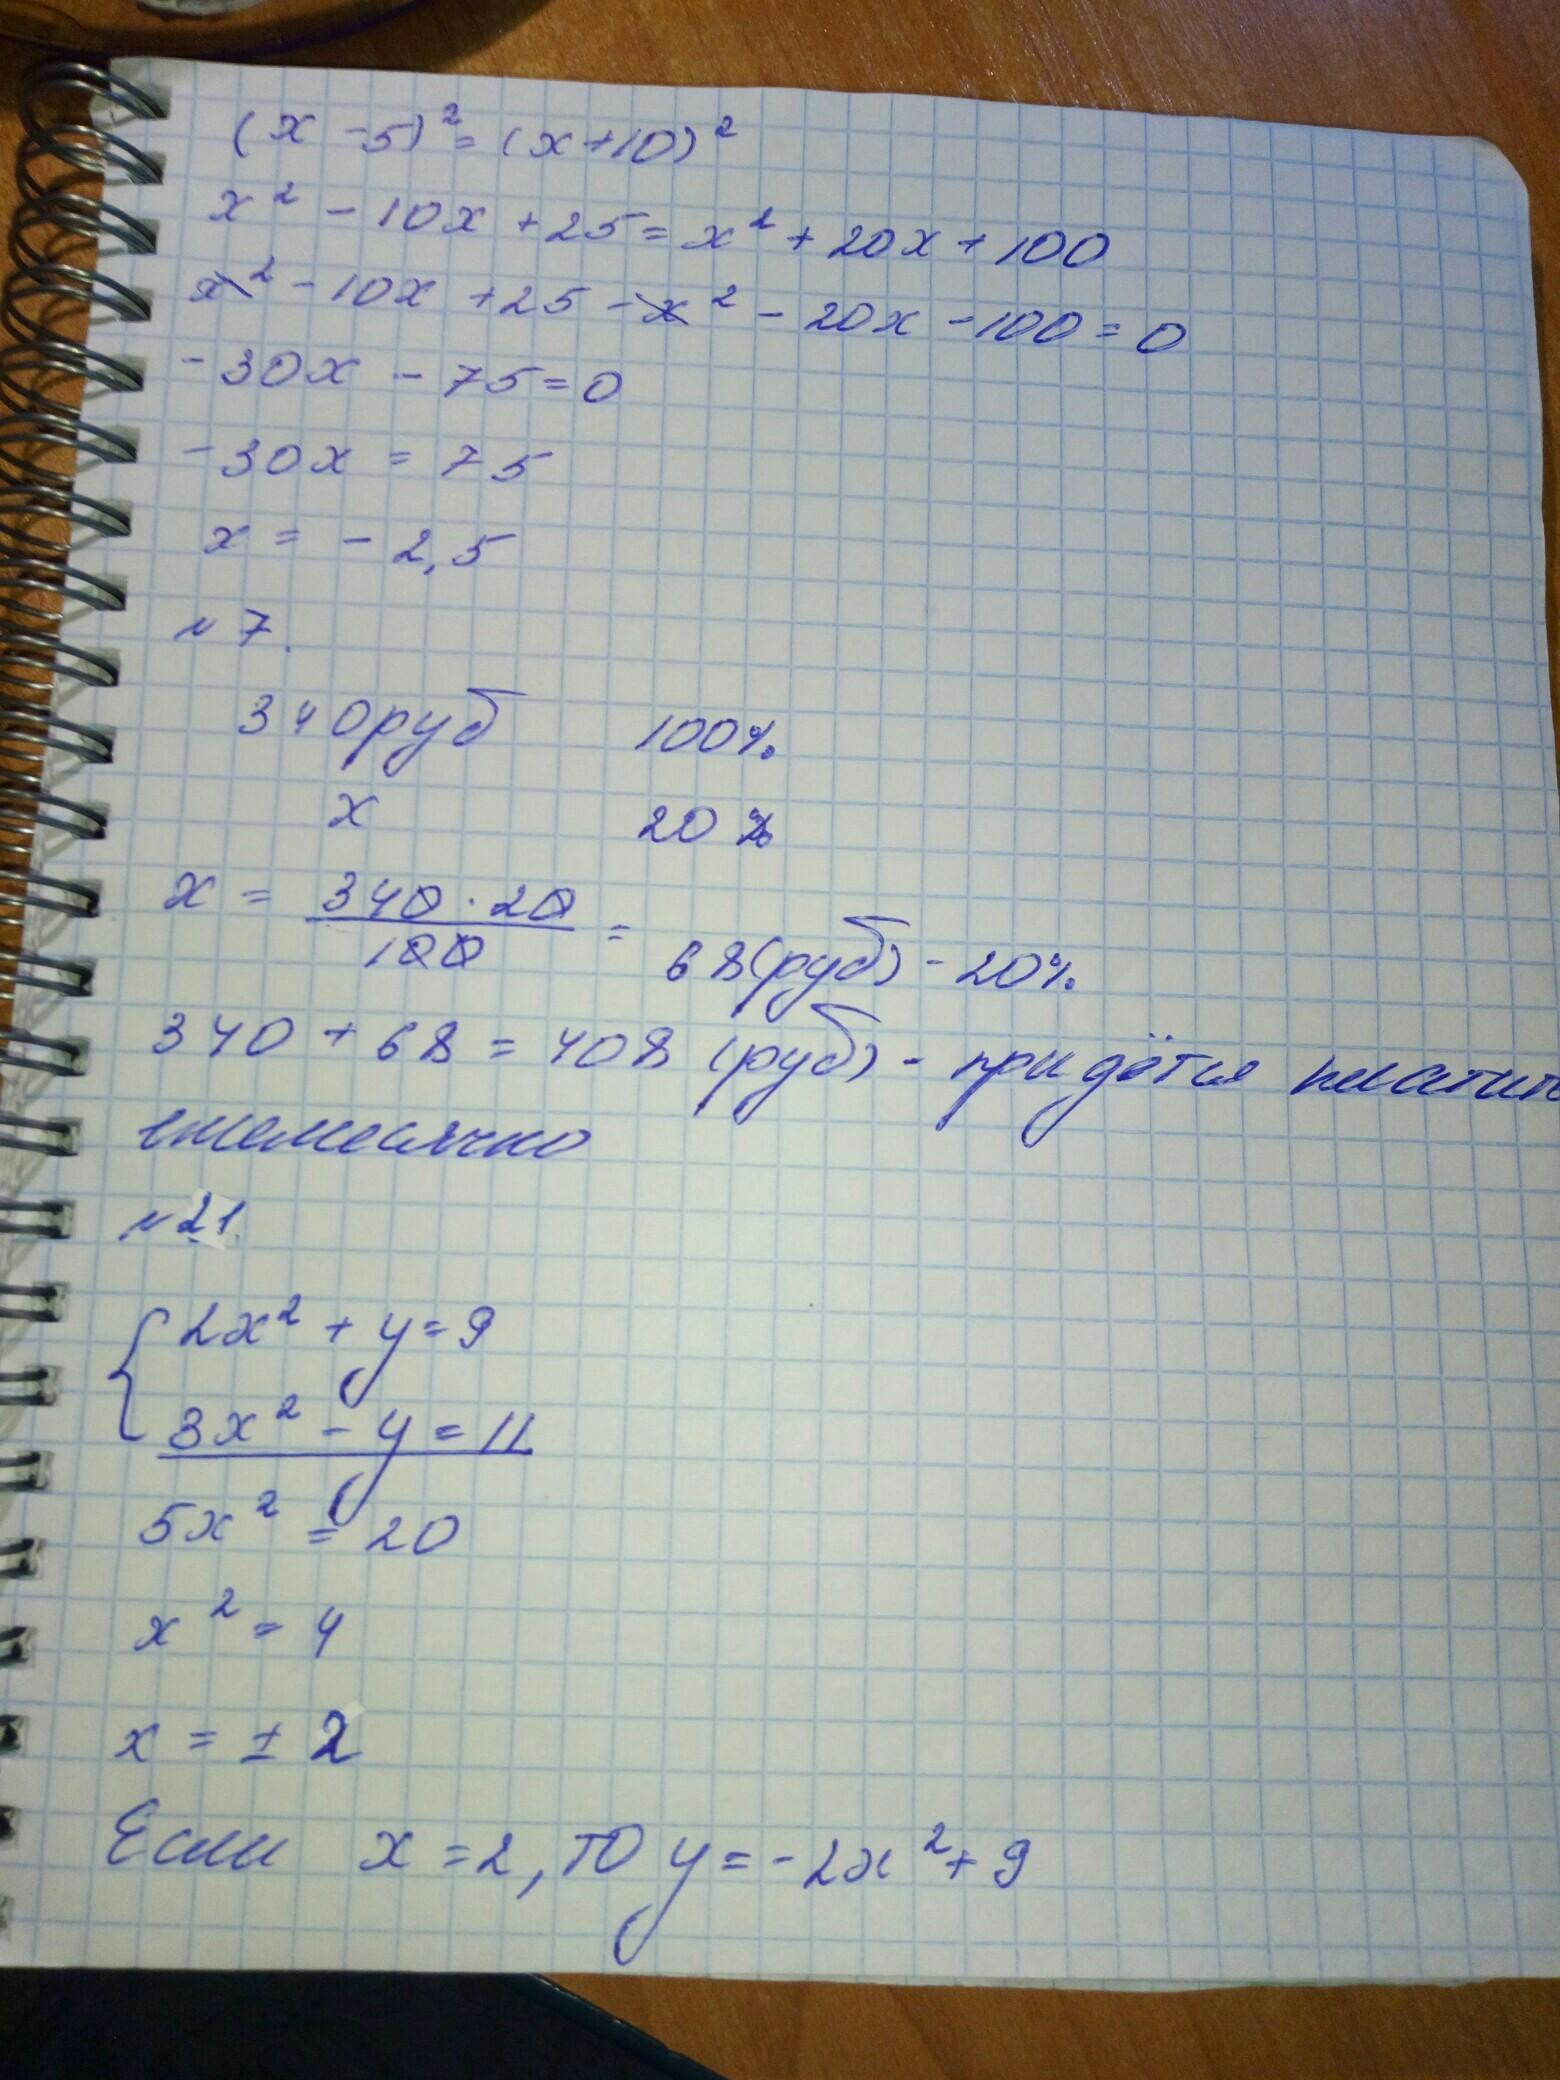 (x - 5)² = (x + 10)²
x² - 10x + 25 = x² + 20x + 100
x² - 10x + 25 - x² - 20x - 100 = 0
- 30x - 75 = 0
- 30x = 75
x = - 2,5
№ 7.
340 руб 100%
x 20 %
x = 340 · 20 / 100 = 68 (руб) - 20%
340 + 68 = 408 (руб) - придётся платить
ежемесячно
№ 21.
{ 2x² + y = 9
3x² - y = 11
5x² = 20
x² = 4
x = ± 2
Если x = 2, то y = - 2x² + 9